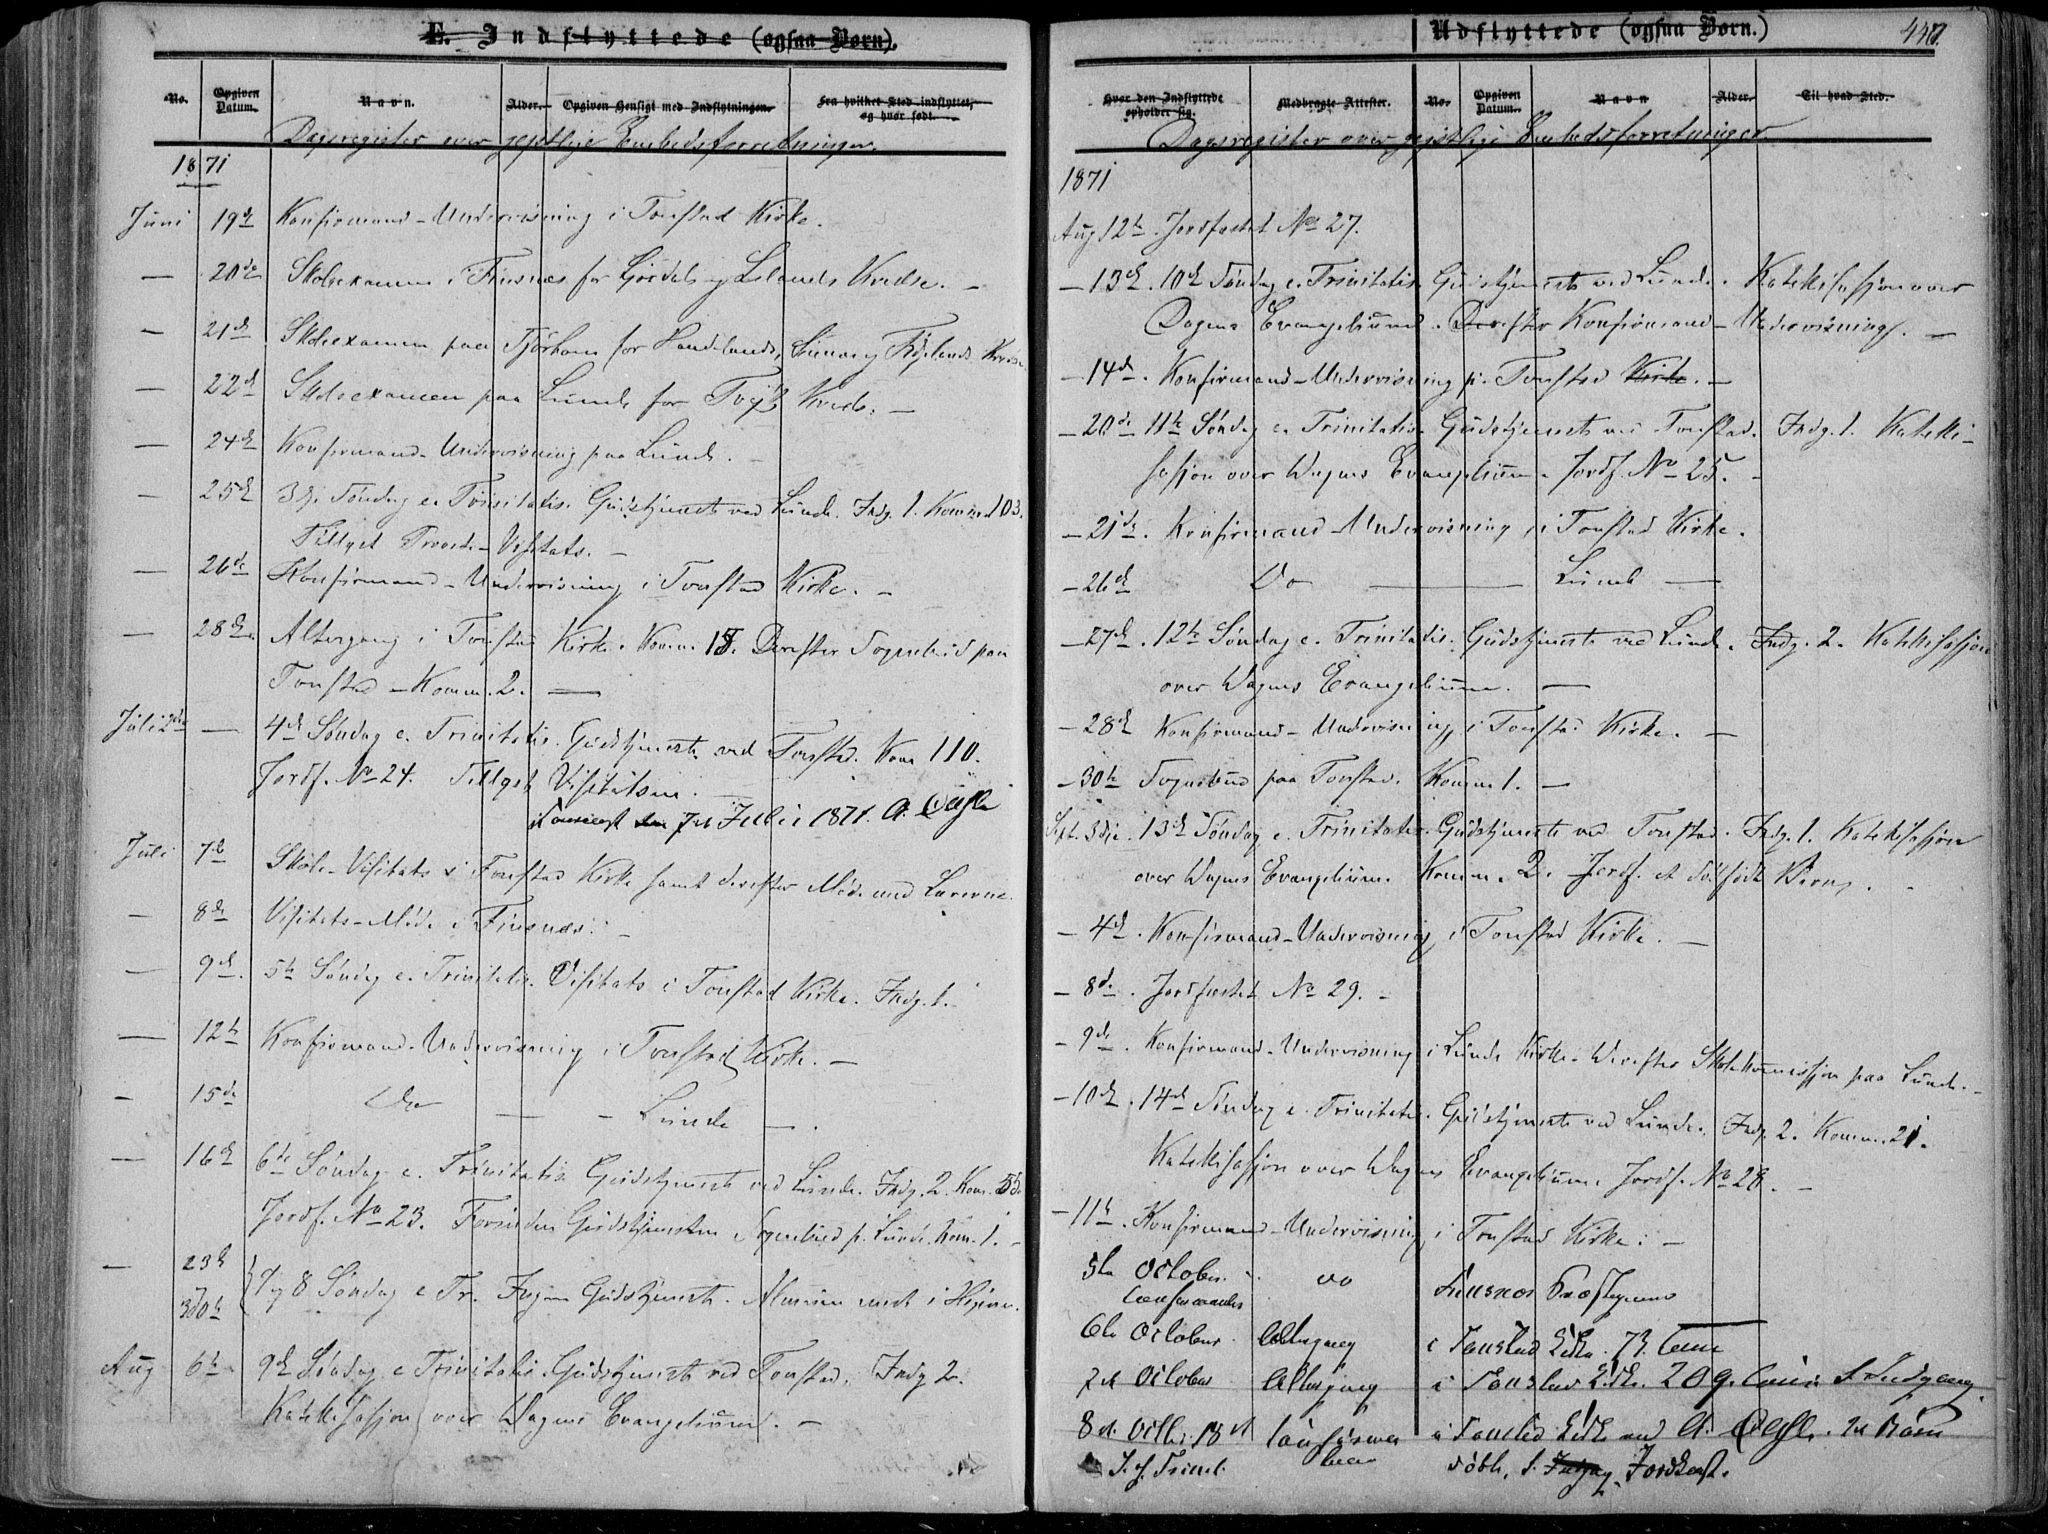 E. Indflyttede (ogsaa Børn).
No.
Opgiven Datum.
Navn.
Alder.
Opgiven Hensigt med Indflytningen.
Fra hvilket Sted indflyttet, og hvor født.
Dagsregister over gejstlige Embedsforretninger.
1871
Juni 19de Konfirmand-Undervisning i Tonstad Kirke.
— 20de Skoleexamen i Finsnæs for Gjørdals og Kvedse. —
— 21de Skoleexamen paa Tjørhom for Haadelands,
— 22de Skoleexamen paa Lunde for Kreds. —
— 24de Konfirmand-Undervisning paa Lunde. —
— 25de 3dje Søndag e. Trinitatis. Gudstjeneste ved Lunde. Indg. 1. Komm. 103.
Tillyst Visitats. —
— 26de Konfirmand-Undervisning i Tonstad Kirke. —
— 28de Altergang i Tonstad Kirke. Komm. 15. Derefter Sognebud paa
Tonstad — Komm. 2. —
Juli 2den — 4de Søndag e. Trinitatis. Gudstjeneste ved Tonstad. Kom 110.
Jordf. No 24. Tillyst Visitatsen. —
7de Juli 1871. A.
Juli 7de Skole-Visitats i Tonstad Kirke samt derefter Møde med Lærerne.
— 8de Visitats-Møde i Finsnæs. —
— 9de 5te Søndag e. Trinitatis. Visitats i Tonstad Kirke. Indg. 1. —
— 12te Konfirmand-Undervisning i Tonstad Kirke. —
— 15de Do — - Lunde —.
— 16de 6te Søndag e. Trinitatis Gudstjeneste ved Lunde. Indg. 2. Kom. 55.
Jordf. No 23. Forinden Gudstjenesten Sognebud p. Lunde Kom. 1. —
— 23de
30te 7 og 8 Søndag e Tr. Ingen Gudstjeneste.
Aug 6te 9de Søndag e Trinitatis. Gudstjeneste ved Tonstad. Indg 2.
Katekisasjon over Dagens Evangelium. —
Udflyttede (ogsaa Børn.)
447.
Hvor den Indflyttede opholder sig.
Medbragte Attester.
No.
Opgiven Datum.
Navn
Alder.
Til hvad Sted.
Dagsregister over gejstlige Embedsforretninger
1871
Aug 12te. Jordfæstet No 27.
— 13de. 10de Søndag e. Trinitatis. Gudstjeneste ved Lunde. Katekisasjon over
Dagens Evangelium. Derefter Konfirmand-Undervisning. —
— 14de. Konfirmand-Undervisning p. Tonstad Kirke. —
— 20de 11te Søndag e. Trinitatis Gudstjeneste ved Tonstad. Indg. 1. Kateki-
sasjon over Dagens Evangelium. Jordf. No 25. —
— 21de. Konfirmand-Undervisning i Tonstad Kirke.
— 26de Do — Lunde —
— 27de. 12te Søndag e. Trinitatis. Gudstjeneste ved Lunde. Indg. 2. Katekisasjon
over Dagens Evangelium. —
— 28de Konfirmand-Undervisning i Tonstad Kirke. —
— 30te Sognebud paa Tonstad. Komm 1. —
Sept. 3dje. 13de Søndag e. Trinitatis. Gudstjeneste ved Tonstad. Indg. 1. Katekisasjon
over Dagens Evangelium. Komm. 2. Jordf. et dødfødt Barn.
— 4de. Konfirmand-Undervisning i Tonstad Kirke. —
— 8de. Jordfæstet No 29. —
— 9de. Konfirmand-Undervisning i Lunde Kirke. Derefter Skolekommissjon paa Lunde. —
— 10de. 14de Søndag e. Trinitatis. Gudstjeneste ved Lunde. Indg. 2. Komm. 21.
Katekisasjon over Dagens Evangelium. Jordf. No 28. —
— 11te. Konfirmand-Undervisning i Tonstad Kirke. —
5te October. do Finsnæs
6te October Altergang i Tonstad Kirke. 73.
7de October Altergang i Tonstad Kirke. 209. 1 Indgang
8de. 18de i Tonstad Kirke ved A. Børn
døbt, 1. Indgag, Jordkast.